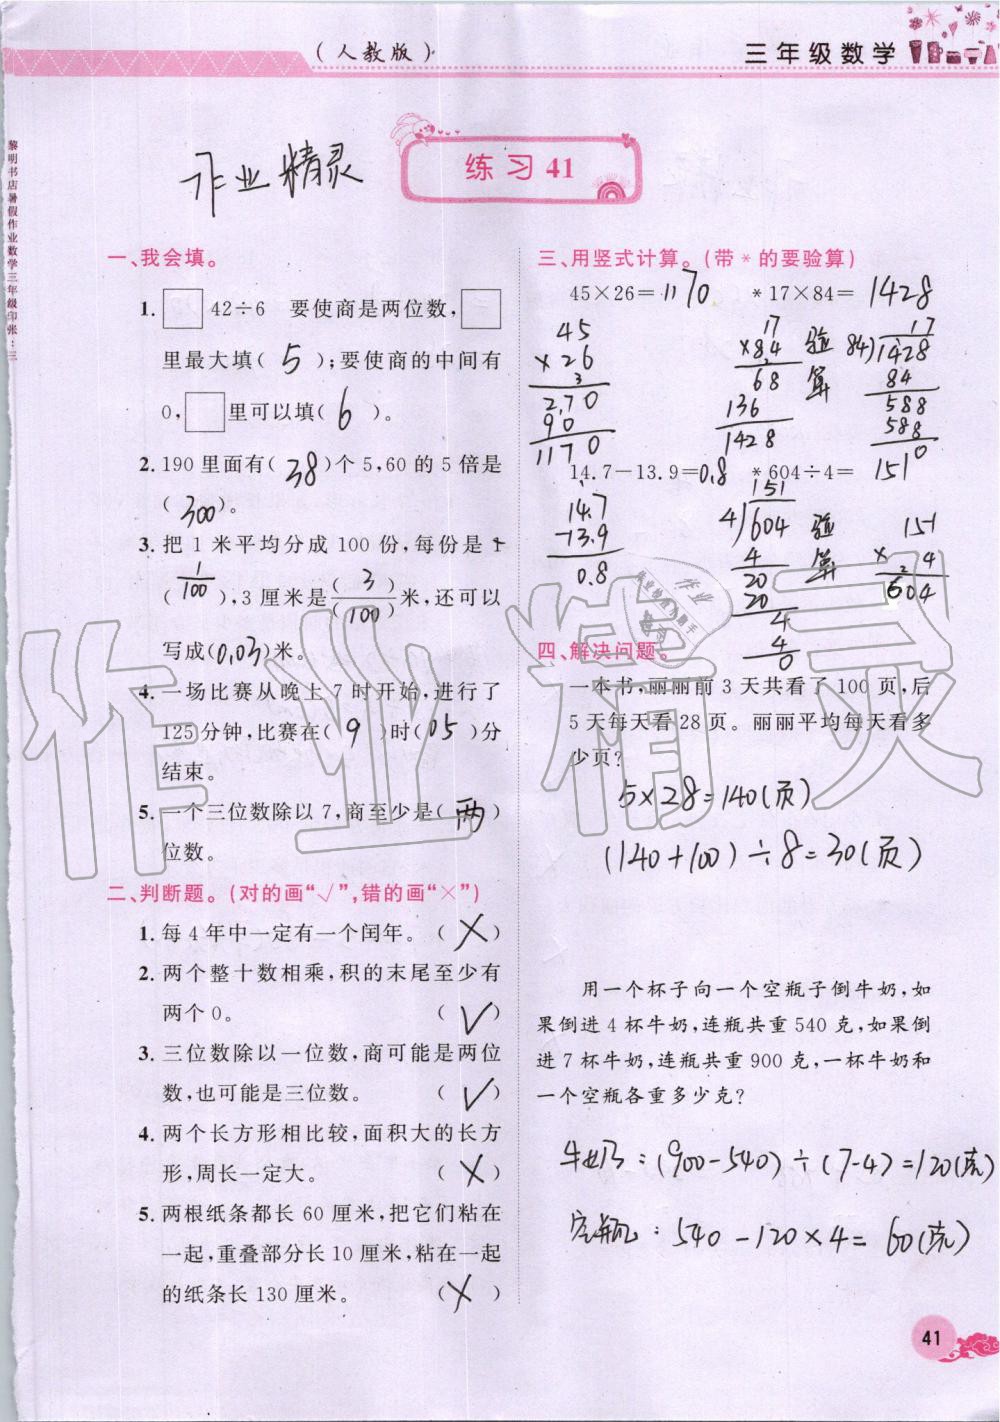 (人教版)
三年级数学
黎明书店暑假作业数学三年级印张:三
作业精灵
练习 41
一、我会填。
1. □42÷6 要使商是两位数,□
里最大填( 5 );要使商的中间有
0,□里可以填( 6 )。
2. 190 里面有( 38 )个 5,60 的 5 倍是
( 300 )。
3. 把 1 米平均分成 100 份,每份是
( 1/100 ),3 厘米是(3)/(100)米,还可以
写成(0.03)米。
4. 一场比赛从晚上 7 时开始,进行了
125分钟,比赛在( 9 )时( 05 )分
结束。
5. 一个三位数除以 7,商至少是( 两 )
位数。
二、判断题。(对的画“√”,错的画“×”)
1. 每 4 年中一定有一个闰年。( × )
2. 两个整十数相乘,积的末尾至少有
两个 0。 ( √ )
3. 三位数除以一位数,商可能是两位
数,也可能是三位数。 ( √ )
4. 两个长方形相比较,面积大的长方
形,周长一定大。 ( × )
5. 两根纸条都长 60 厘米,把它们粘在
一起,重叠部分长 10 厘米,粘在一起
的纸条长 130 厘米。 ( × )
三、用竖式计算。(带 * 的要验算)
45×26= 1170 *17×84= 1428
45
×26
3
270
90
1170
17
×84
2
68
136
1428
验算
17
84)1428
84
588
588
0
14.7−13.9=0.8 *604÷4= 151
14.7
-13.9
0.8
151
4)604
4
20
20
4
4
0
验算
151
× 4
2
604
四、解决问题。
一本书,丽丽前 3 天共看了 100 页,后
5 天每天看 28 页。丽丽平均每天看多
少页?
5×28=140(页)
(140+100)÷8=30(页)
用一个杯子向一个空瓶子倒牛奶,如
果倒进 4 杯牛奶,连瓶共重 540 克,如果倒
进 7 杯牛奶,连瓶共重 900 克,一杯牛奶和
一个空瓶各重多少克?
牛奶:(900-540)÷(7-4)=120(克)
空瓶:540-120×4=60(克)
41
作业精灵